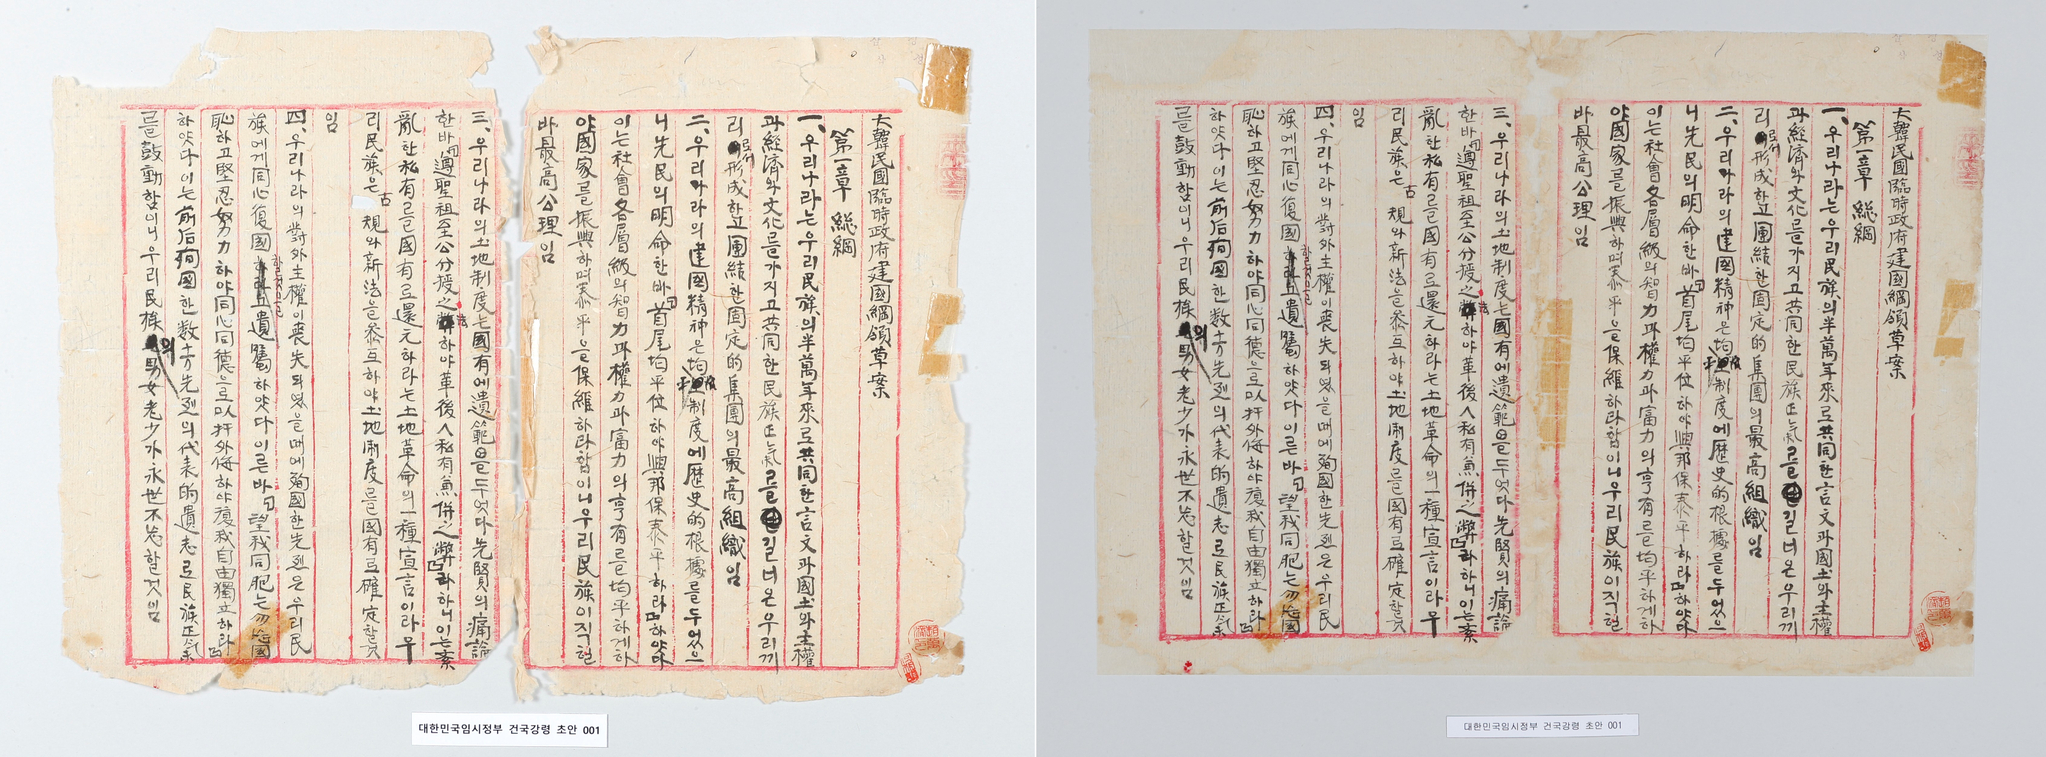 大韓民國臨時政府建國綱領草案
第一章 総綱
一、우리나라는우리民族의半萬年來로共同한言文과國土와主權
과經濟와文化를가지고共同한民族正氣를길너온우리끼
리로서形成하고團結한固定的集團의最高組織임
二、우리나라의建國精神은均制度에歷史的根據를두었으
니先民의明命한바「首尾均平位하야興邦保泰平하리라」하얏다
이는社會各層級의智力과權力과富力의享有를均平하게하
야國家를振興하며泰平을保維하라함이니우리民族이직힌
바最高公理임
三、우리나라의土地制度는國有에遺範을두엇다先賢의痛論
한바「遵聖祖至公分授之法하야革後人私有兼併之弊」라하니이는紊
亂한私有를國有로還元하라는土地革命의一種宣言이라우
리民族은古規와新法을參互하야土地制度를國有로確定할것
임
四、우리나라의對外主權이喪失되엿을때에殉國한先烈은우리民
族에게同心復國할것으로遺囑하얏다이른바「望我同胞는勿忘國
恥하고堅忍努力하야同心同德으로以扞外侮하야復我自由獨立하라」
하얏다이는前后殉國한数十万先烈의代表的遺志로民族正氣
를鼓動함이니우리民族의男女老少가永世不忘할것임
대한민국임시정부 건국강령 초안 001
大韓民國臨時政府建國綱領草案
第一章 総綱
一、우리나라는우리民族의半萬年來로共同한言文과國土와主權
과經濟와文化를가지고共同한民族正氣를길너온우리끼
리로서形成하고團結한固定的集團의最高組織임
二、우리나라의建國精神은均制度에歷史的根據를두었으
니先民의明命한바「首尾均平位하야興邦保泰平하리라」하얏다
이는社會各層級의智力과權力과富力의享有를均平하게하
야國家를振興하며泰平을保維하라함이니우리民族이직힌
바最高公理임
三、우리나라의土地制度는國有에遺範을두엇다先賢의痛論
한바「遵聖祖至公分授之法하야革後人私有兼併之弊」라하니이는紊
亂한私有를國有로還元하라는土地革命의一種宣言이라우
리民族은古規와新法을參互하야土地制度를國有로確定할것
임
四、우리나라의對外主權이喪失되엿을때에殉國한先烈은우리民
族에게同心復國할것으로遺囑하얏다이른바「望我同胞는勿忘國
恥하고堅忍努力하야同心同德으로以扞外侮하야復我自由獨立하라」
하얏다이는前后殉國한数十万先烈의代表的遺志로民族正氣
를鼓動함이니우리民族의男女老少가永世不忘할것임
대한민국임시정부 건국강령 초안 001